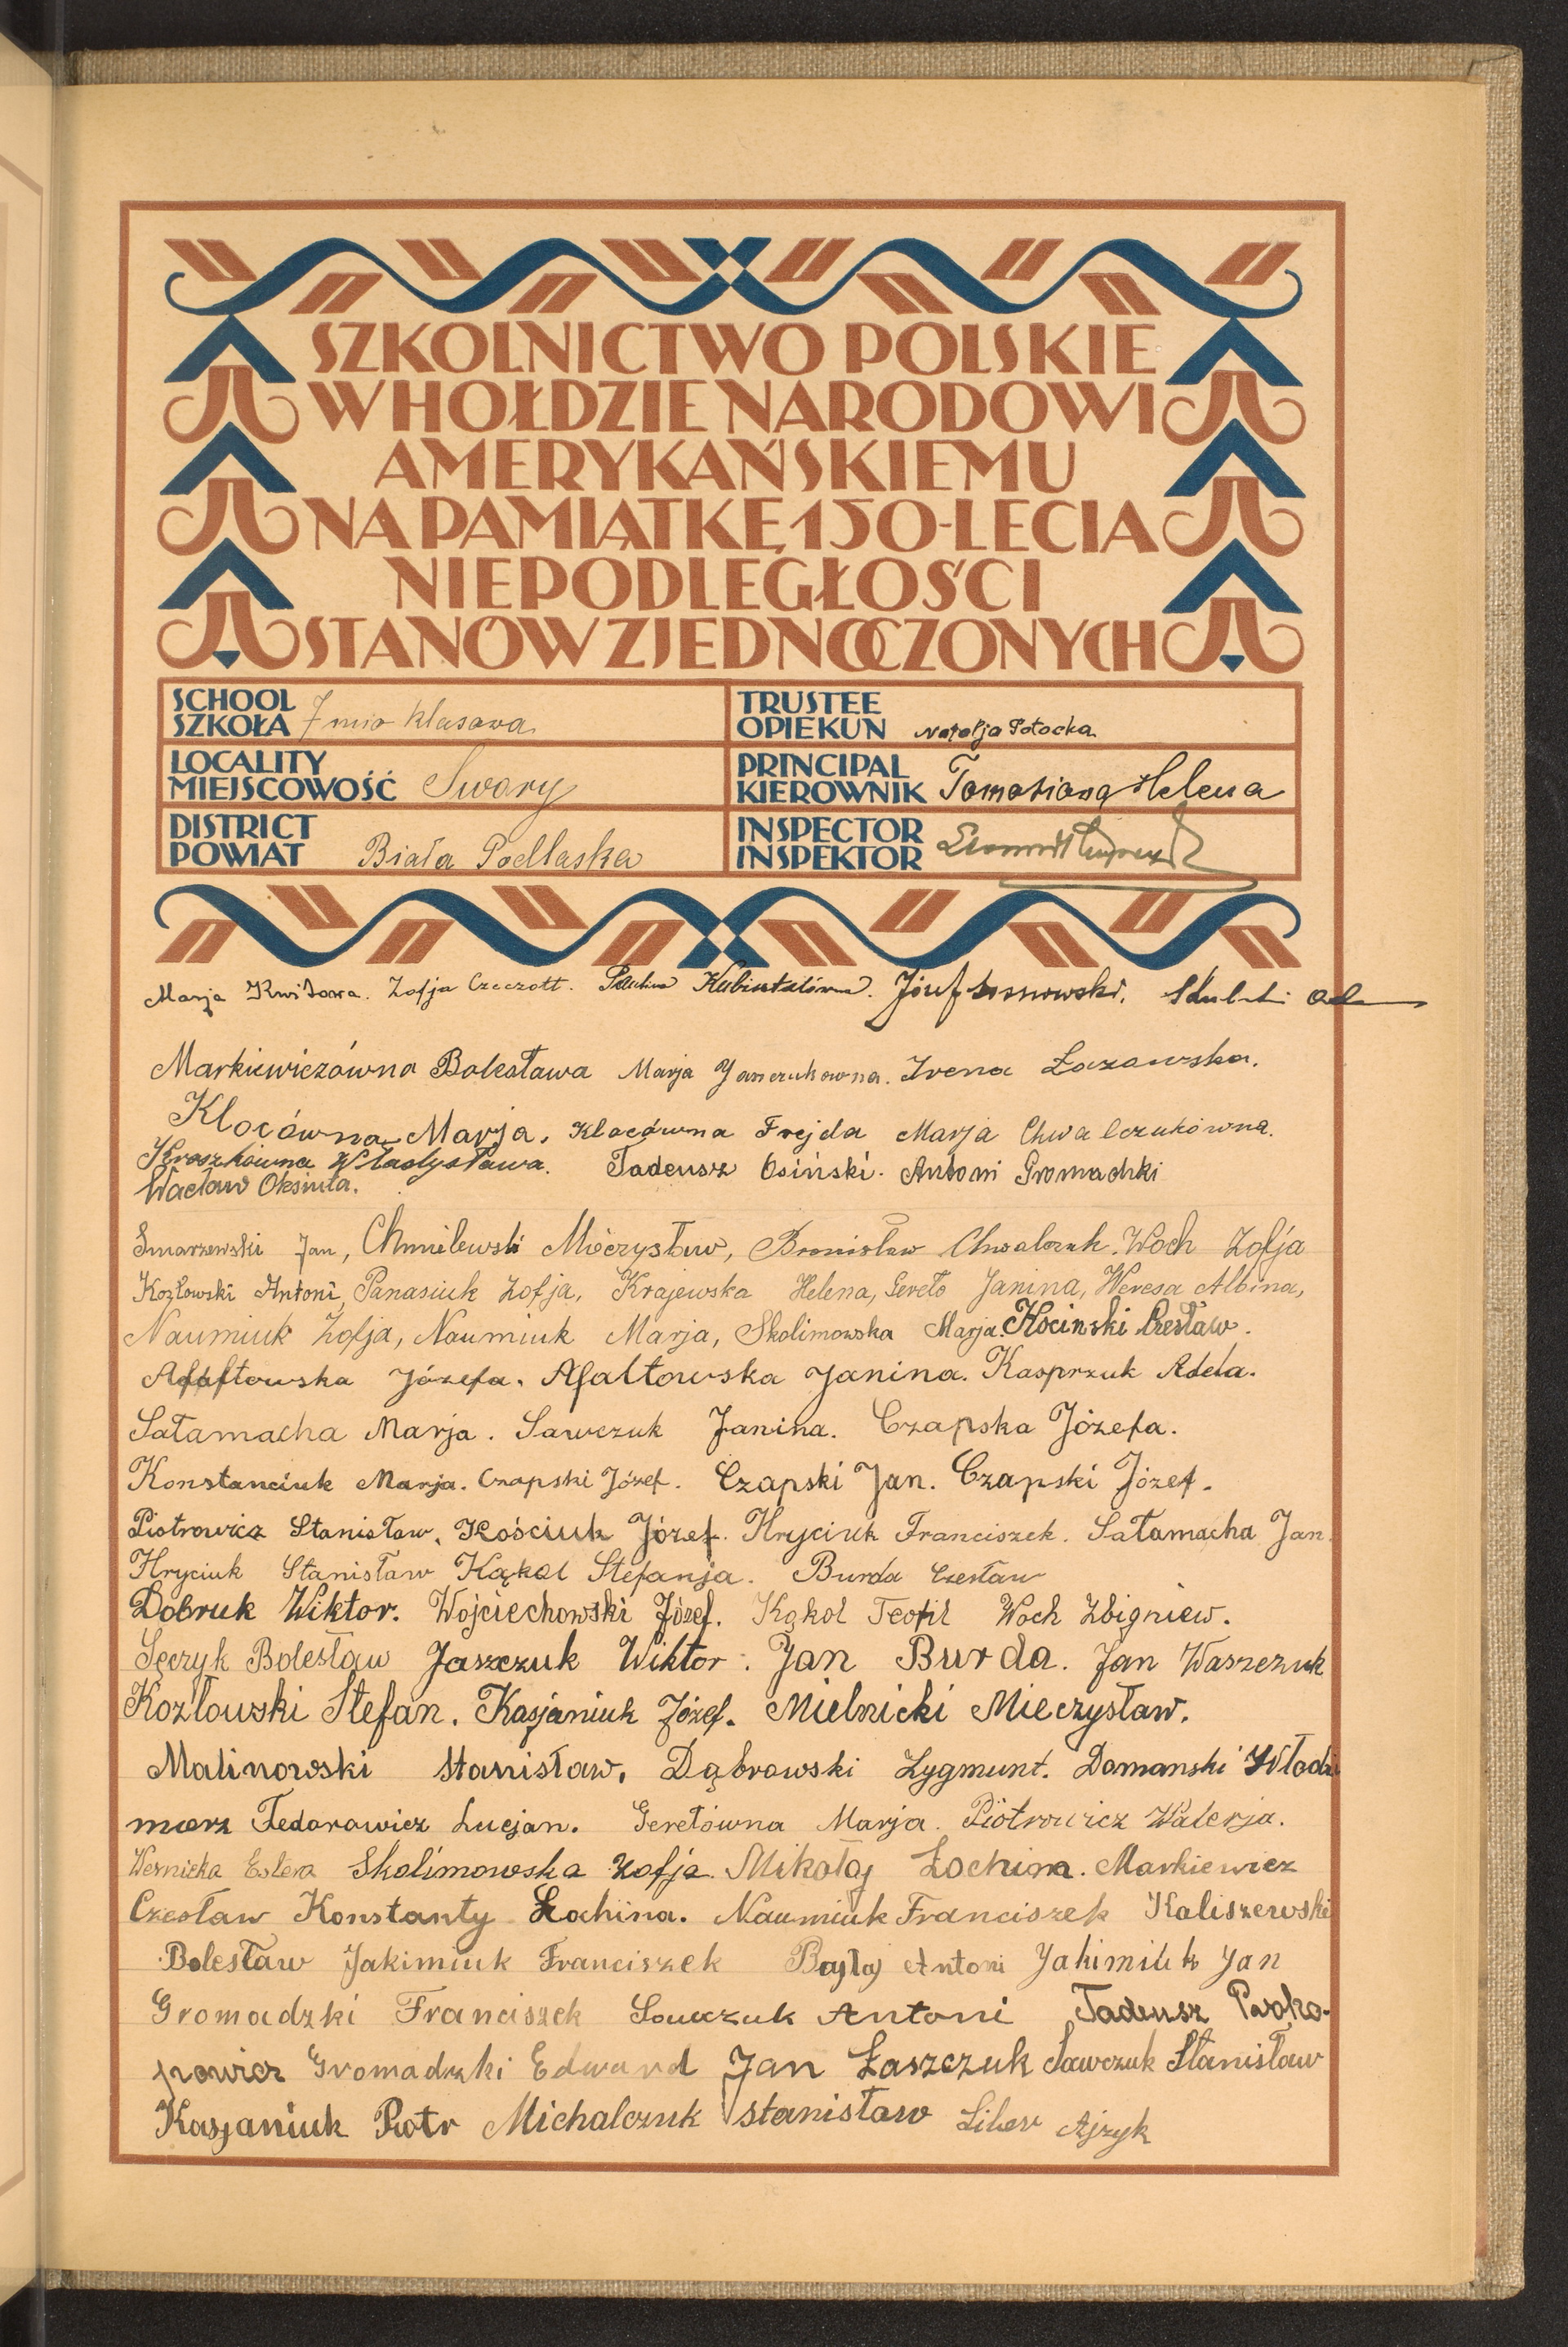 SZKOLNICTWO POLSKIE
W HOŁDZIE NARODOWI
AMERYKAŃSKIEMU
NA PAMIĄTKĘ 150-LECIA
NIEPODLEGŁOŚCI
STANÓW ZJEDNOCZONYCH
SCHOOL
SZKOŁA 7 mio klasowa
TRUSTEE
OPIEKUN Natalja Potocka
LOCALITY
MIEJSCOWOŚĆ Swory
PRINCIPAL
KIEROWNIK Helena
DISTRICT
POWIAT Biała Podlaska
INSPECTOR
INSPEKTOR
Marja Kwitowa. Zofja Czeczott. Józef Sosnowski.
Markiewiczówna Bolesława Marja Janczukowna. Irena Łazowska.
Klocówna Marja. Klocówna Frejda Marja Chwalczukówna.
Kraszkówna Władysława. Tadeusz Osiński. Antoni Gromadzki
Wacław Oksiuta.
Smarzewski Jan, Chmilewski Mieczysław, Bronisław Chwalczuk. Woch Zofja
Kozłowski Antoni, Panasiuk Zofja, Krajewska Helena, Gereto Janina, Weresa Albina,
Naumiuk Zofja, Naumiuk Marja, Skolimowska Marja. Kociński Czesław.
Afałtowska Józefa. Afałtowska Janina. Kasprzuk Adela.
Sałamacha Marja. Sawczuk Janina. Czapska Józefa.
Konstanciuk Marja. Czapski Józef. Czapski Jan. Czapski Józef.
Piotrowicz Stanisław. Kościuk Józef. Hryciuk Franciszek. Sałamacha Jan.
Hryciuk Stanisław Kąkol Stefanja. Burda Czesław
Dobruk Wiktor. Wojciechowski Józef. Kąkol Teofil Woch Zbigniew.
Sęczyk Bolesław Jaszczuk Wiktor. Jan Burda. Jan Waszczuk
Kozłowski Stefan. Kasjaniuk Józef. Mielnicki Mieczysław.
Malinowski Stanisław. Dąbrowski Zygmunt. Domanski Włodzi
mierz Fedorowicz Lucjan. Geretówna Marja. Piotrowicz Walerja.
Wernicka Estera Skolimowska Zofja. Mikołaj Łochina. Markiewicz
Czesław Konstanty Łochina. Naumiuk Franciszek Kaliszewski
Bolesław Jakimiuk Franciszek Bajtaj Antoni Jakimiuk Jan
Gromadzki Franciszek Sawczuk Antoni Tadeusz Parko-
powicz Gromadzki Edward Jan Łaszczuk Sawczuk Stanisław
Kasjaniuk Piotr Michalczuk Stanisław Liber Ajzyk